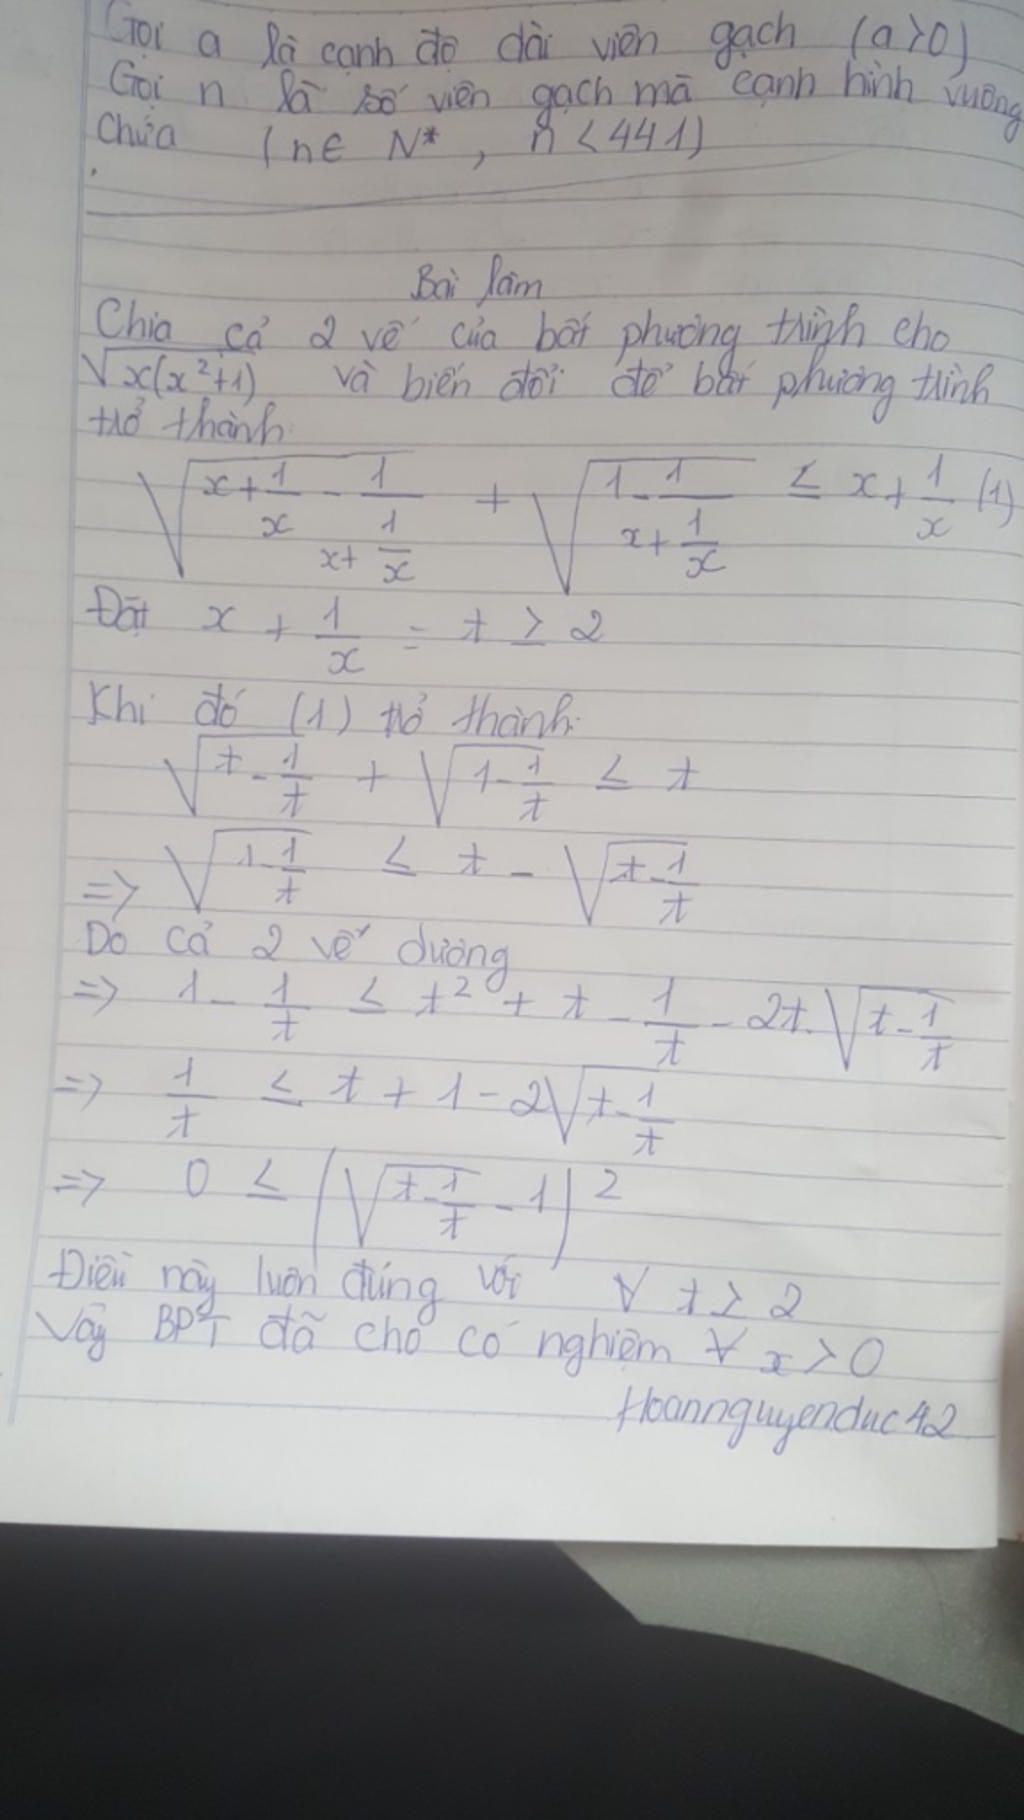 Gọi a là cạnh độ dài viên gạch (a>0)
Gọi n là số viên gạch mà cạnh hình vuông
chứa (n∈ N*, n<441)
Bài làm
Chia cả 2 vế của bất phương trình cho
√(x(x²+1)) và biến đổi để bất phương trình
trở thành:
√(x + 1/x - 1/(x + 1/x)) + √(1 - 1/(x + 1/x)) ≤ x + 1/x (1)
Đặt x + 1/x = t ≥ 2
Khi đó (1) trở thành:
√(t - 1/t) + √(1 - 1/t) ≤ t
=> √(1 - 1/t) ≤ t - √(t - 1/t)
Do cả 2 vế dương
=> 1 - 1/t ≤ t² + t - 1/t - 2t.√(t - 1/t)
=> 1/t ≤ t + 1 - 2√(t - 1/t)
=> 0 ≤ (√(t - 1/t) - 1)²
Điều này luôn đúng với ∀ t ≥ 2
Vậy BPT đã cho có nghiệm ∀ x > 0
Hoannguyenduc42